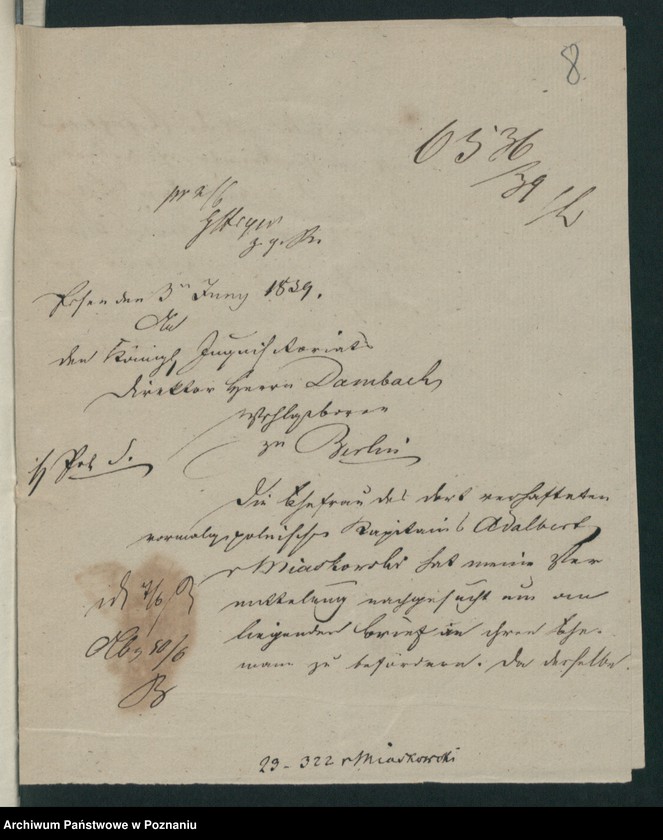 8
6536
/39
Posen den 3ten Juny 1839.
An
den Königl Inquisitoriats
Direktor Herrn Dambach
Wohlgeboren
zu Berlin
Die Ehefrau des dort verhafteten
vormals polnischen Kapitains Adalbert
v Miaskowski hat meine Ver
mittelung nachgesucht um an
liegenden Brief an ihren Ehe-
mann zu befördern. Da derselbe
29-322 v Miaskowski
Archiwum Państwowe w Poznaniu